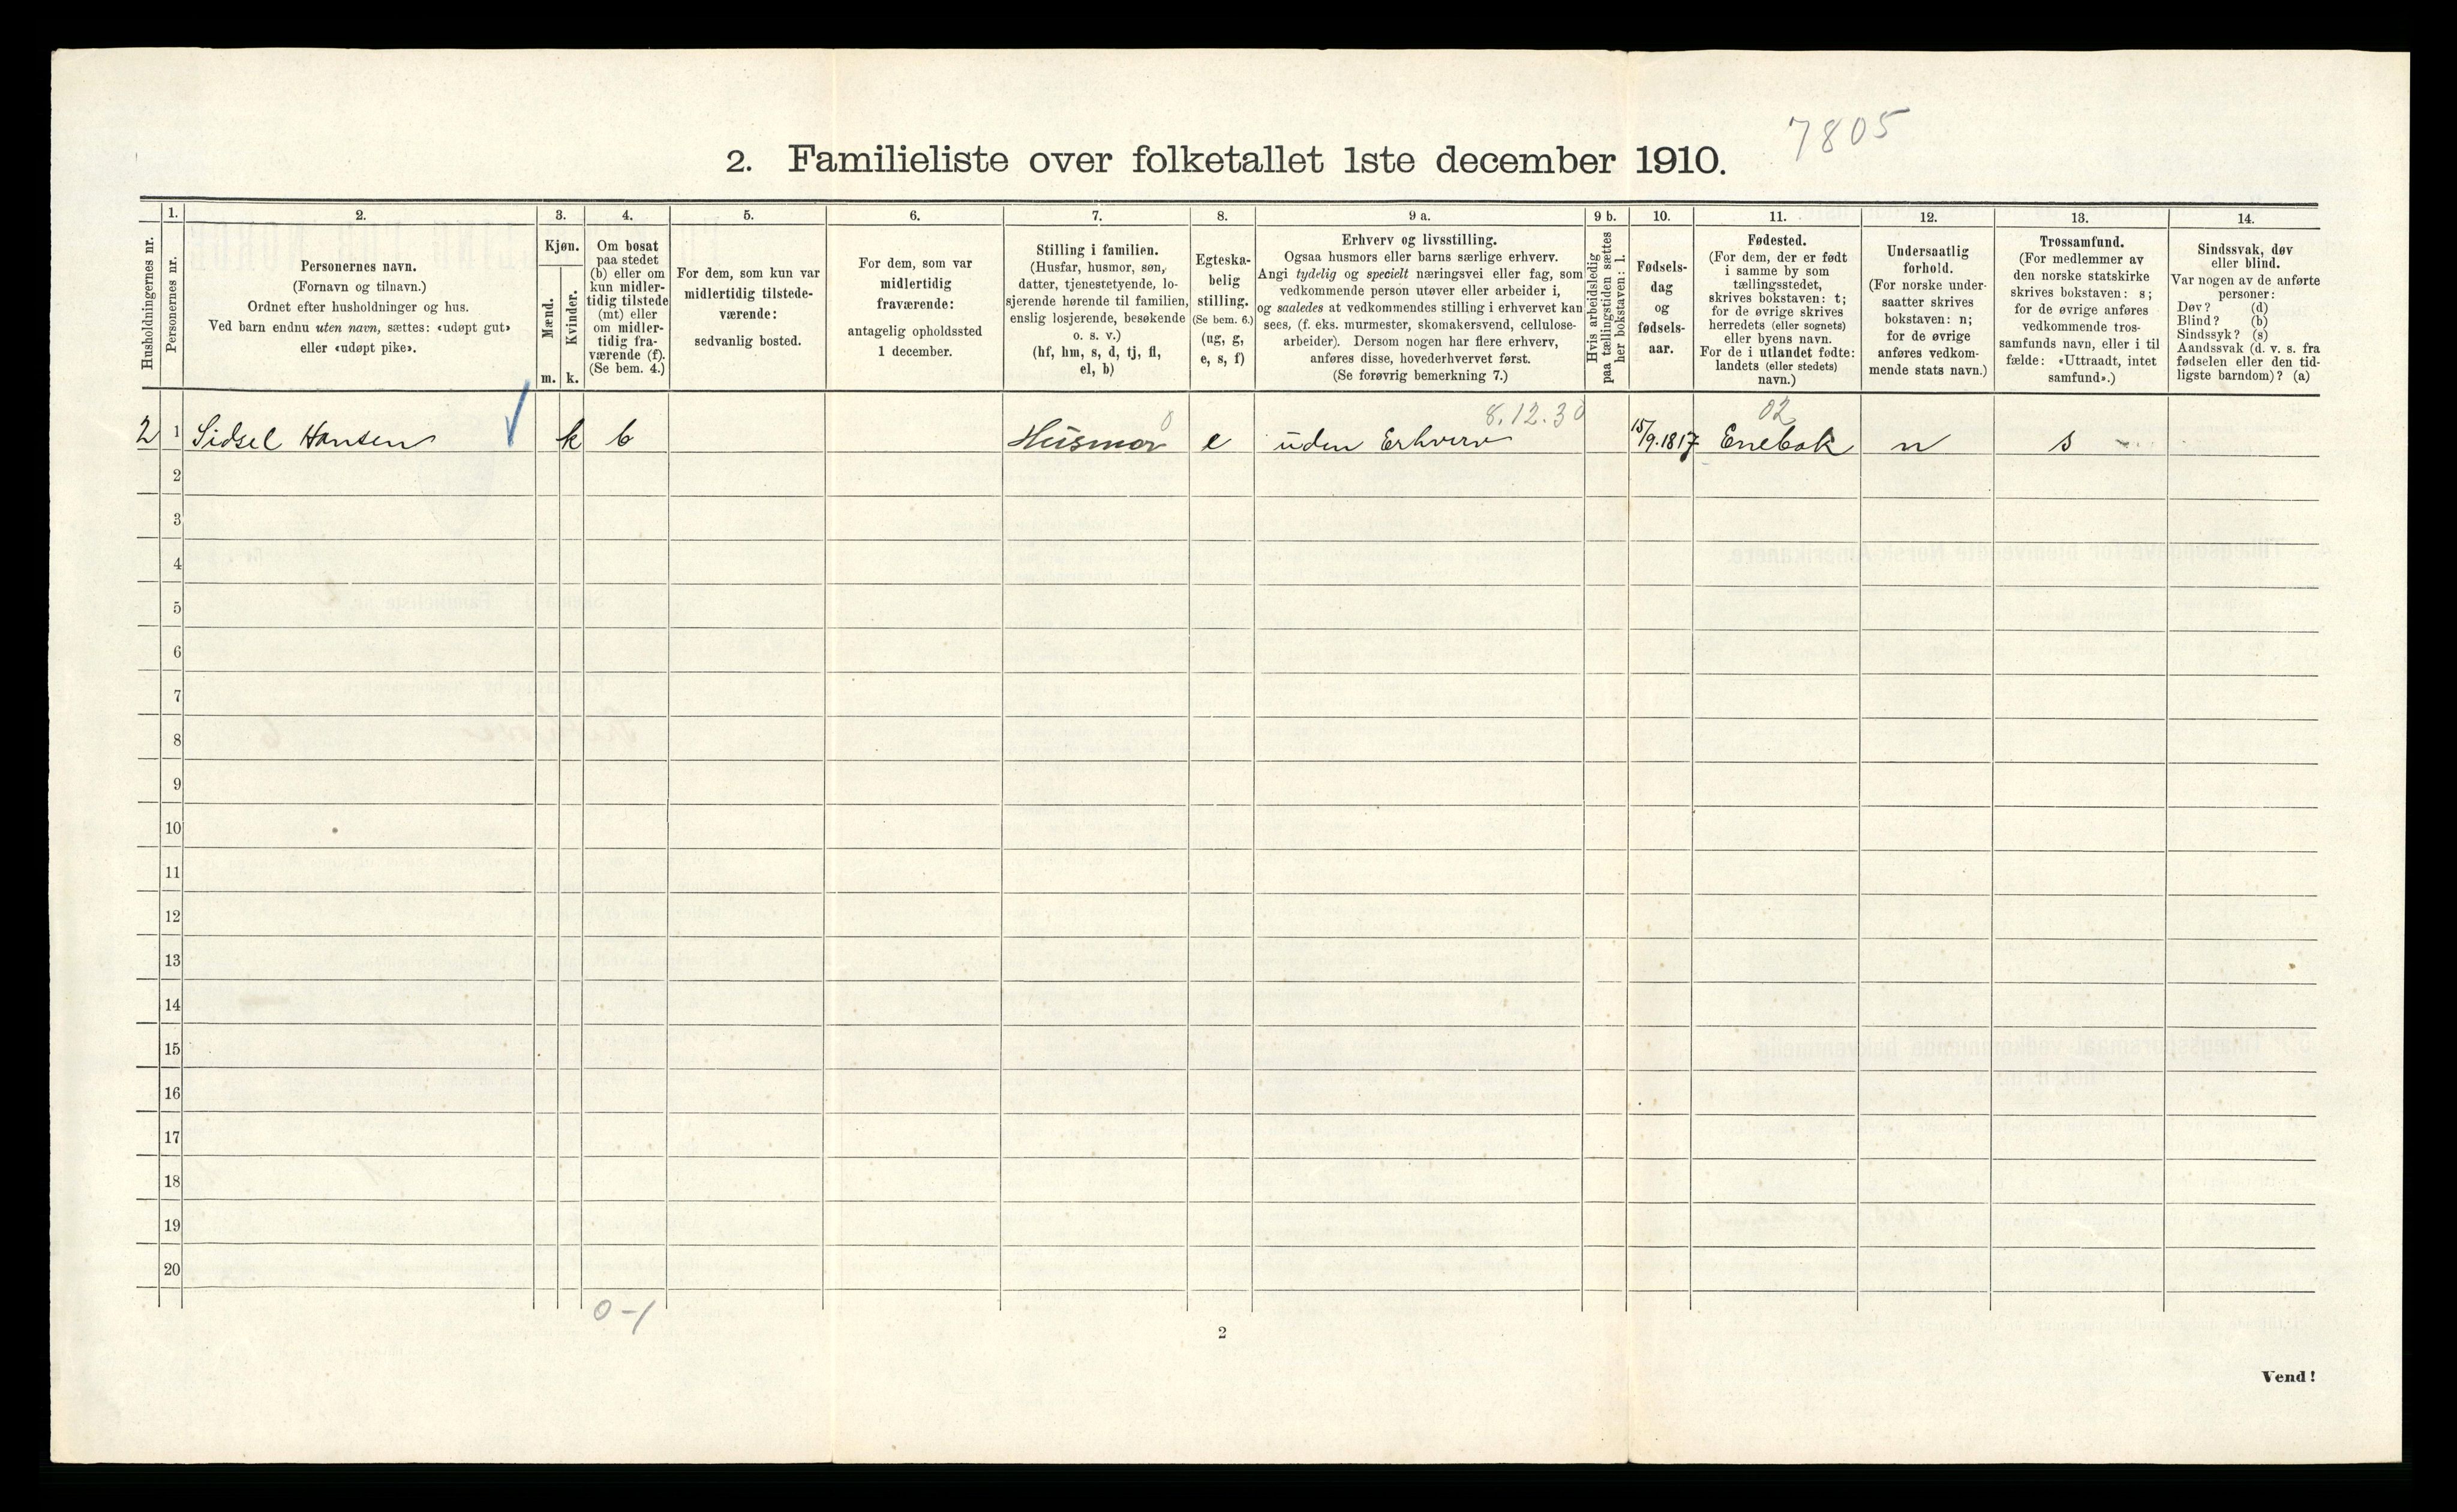 7805
2. Familieliste over folketallet 1ste december 1910.
Husholdningernes nr.
1.
Personernes nr.
2.
Personernes navn.
(Fornavn og tilnavn.)
Ordnet efter husholdninger og hus.
Ved barn endnu uten navn, sættes: «udøpt gut»
eller «udøpt pike».
3.
Kjøn.
Mænd.
Kvinder.
m. k.
4.
Om bosat
paa stedet
(b) eller om
kun midler-
tidig tilstede
(mt) eller
om midler-
tidig fra-
værende (f).
(Se bem. 4.)
5.
For dem, som kun var
midlertidig tilstede-
værende:
sedvanlig bosted.
6.
For dem, som var
midlertidig
fraværende:
antagelig opholdssted
1 december.
7.
Stilling i familien.
(Husfar, husmor, søn,
datter, tjenestetyende, lo-
sjerende hørende til familien,
enslig losjerende, besøkende
o. s. v.)
(hf, hm, s, d, tj, fl,
el, b)
8.
Egteska-
belig
stilling.
(Se bem. 6.)
(ug, g,
e, s, f)
9 a.
Erhverv og livsstilling.
Ogsaa husmors eller barns særlige erhverv.
Angi tydelig og specielt næringsvei eller fag, som
vedkommende person utøver eller arbeider i,
og saaledes at vedkommendes stilling i erhvervet kan
sees, (f. eks. murmester, skomakersvend, cellulose-
arbeider). Dersom nogen har flere erhverv,
anføres disse, hovederhvervet først.
(Se forøvrig bemerkning 7.)
9 b.
Hvis arbeidsledig
paa tællingstiden sættes
her bokstaven: l.
10.
Fødsels-
dag
og
fødsels-
aar.
11.
Fødested.
(For dem, der er født
i samme by som
tællingsstedet,
skrives bokstaven: t;
for de øvrige skrives
herredets (eller sognets)
eller byens navn.
For de i utlandet fødte:
landets (eller stedets)
navn.)
12.
Undersaatlig
forhold.
(For norske under-
saatter skrives
bokstaven: n;
for de øvrige
anføres vedkom-
mende stats navn.)
13.
Trossamfund.
(For medlemmer av
den norske statskirke
skrives bokstaven: s;
for de øvrige anføres
vedkommende tros-
samfunds navn, eller i til
fælde: «Uttraadt, intet
samfund».)
14.
Sindssvak, døv
eller blind.
Var nogen av de anførte
personer:
Døv? (d)
Blind? (b)
Sindssyk? (s)
Aandssvak (d. v. s. fra
fødselen eller den tid-
ligste barndom)? (a)
0 8.12.30 02
2 1 Sidsel Hansen k b Husmor e uden Erhverv 15/9.1817 Enebak n s
2
3
4
5
6
7
8
9
10
11
12
13
14
15
16
17
18
19
20
0-1
2
Vend!